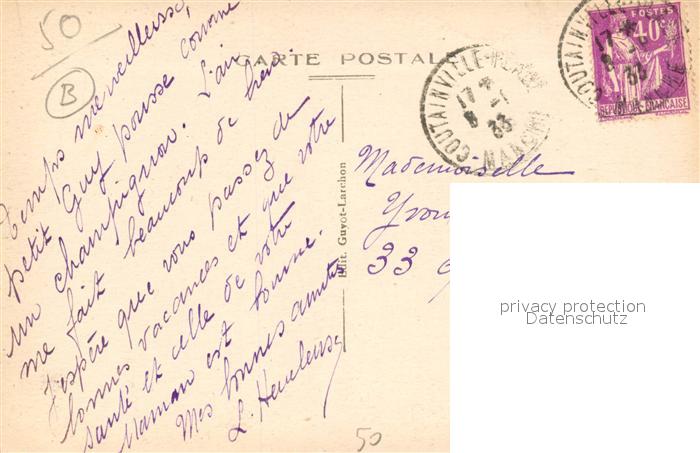 50
B
CARTE POSTALE
Temps merveilleux,
petit Guy pousse comme
un champignon. L'air
me fait beaucoup de bien.
J'espère que vous passez de
bonnes vacances et que votre
santé et celle de votre
Maman est bonne.
Mes bonnes amitiés
L.
Edit. Guyot-Larchon
COUTAINVILLE
MANCHE
17
33
COUTAINVILLE
17
33
POSTES
40c
REPUBLIQUE FRANÇAISE
Mademoiselle
33
50
privacy protection
Datenschutz